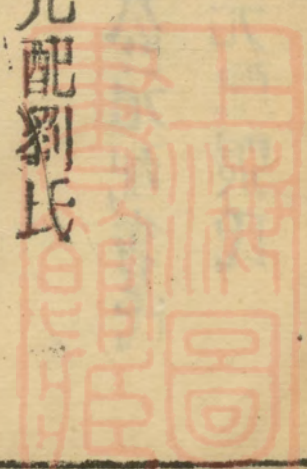 元配劉氏
上海圖
書館藏